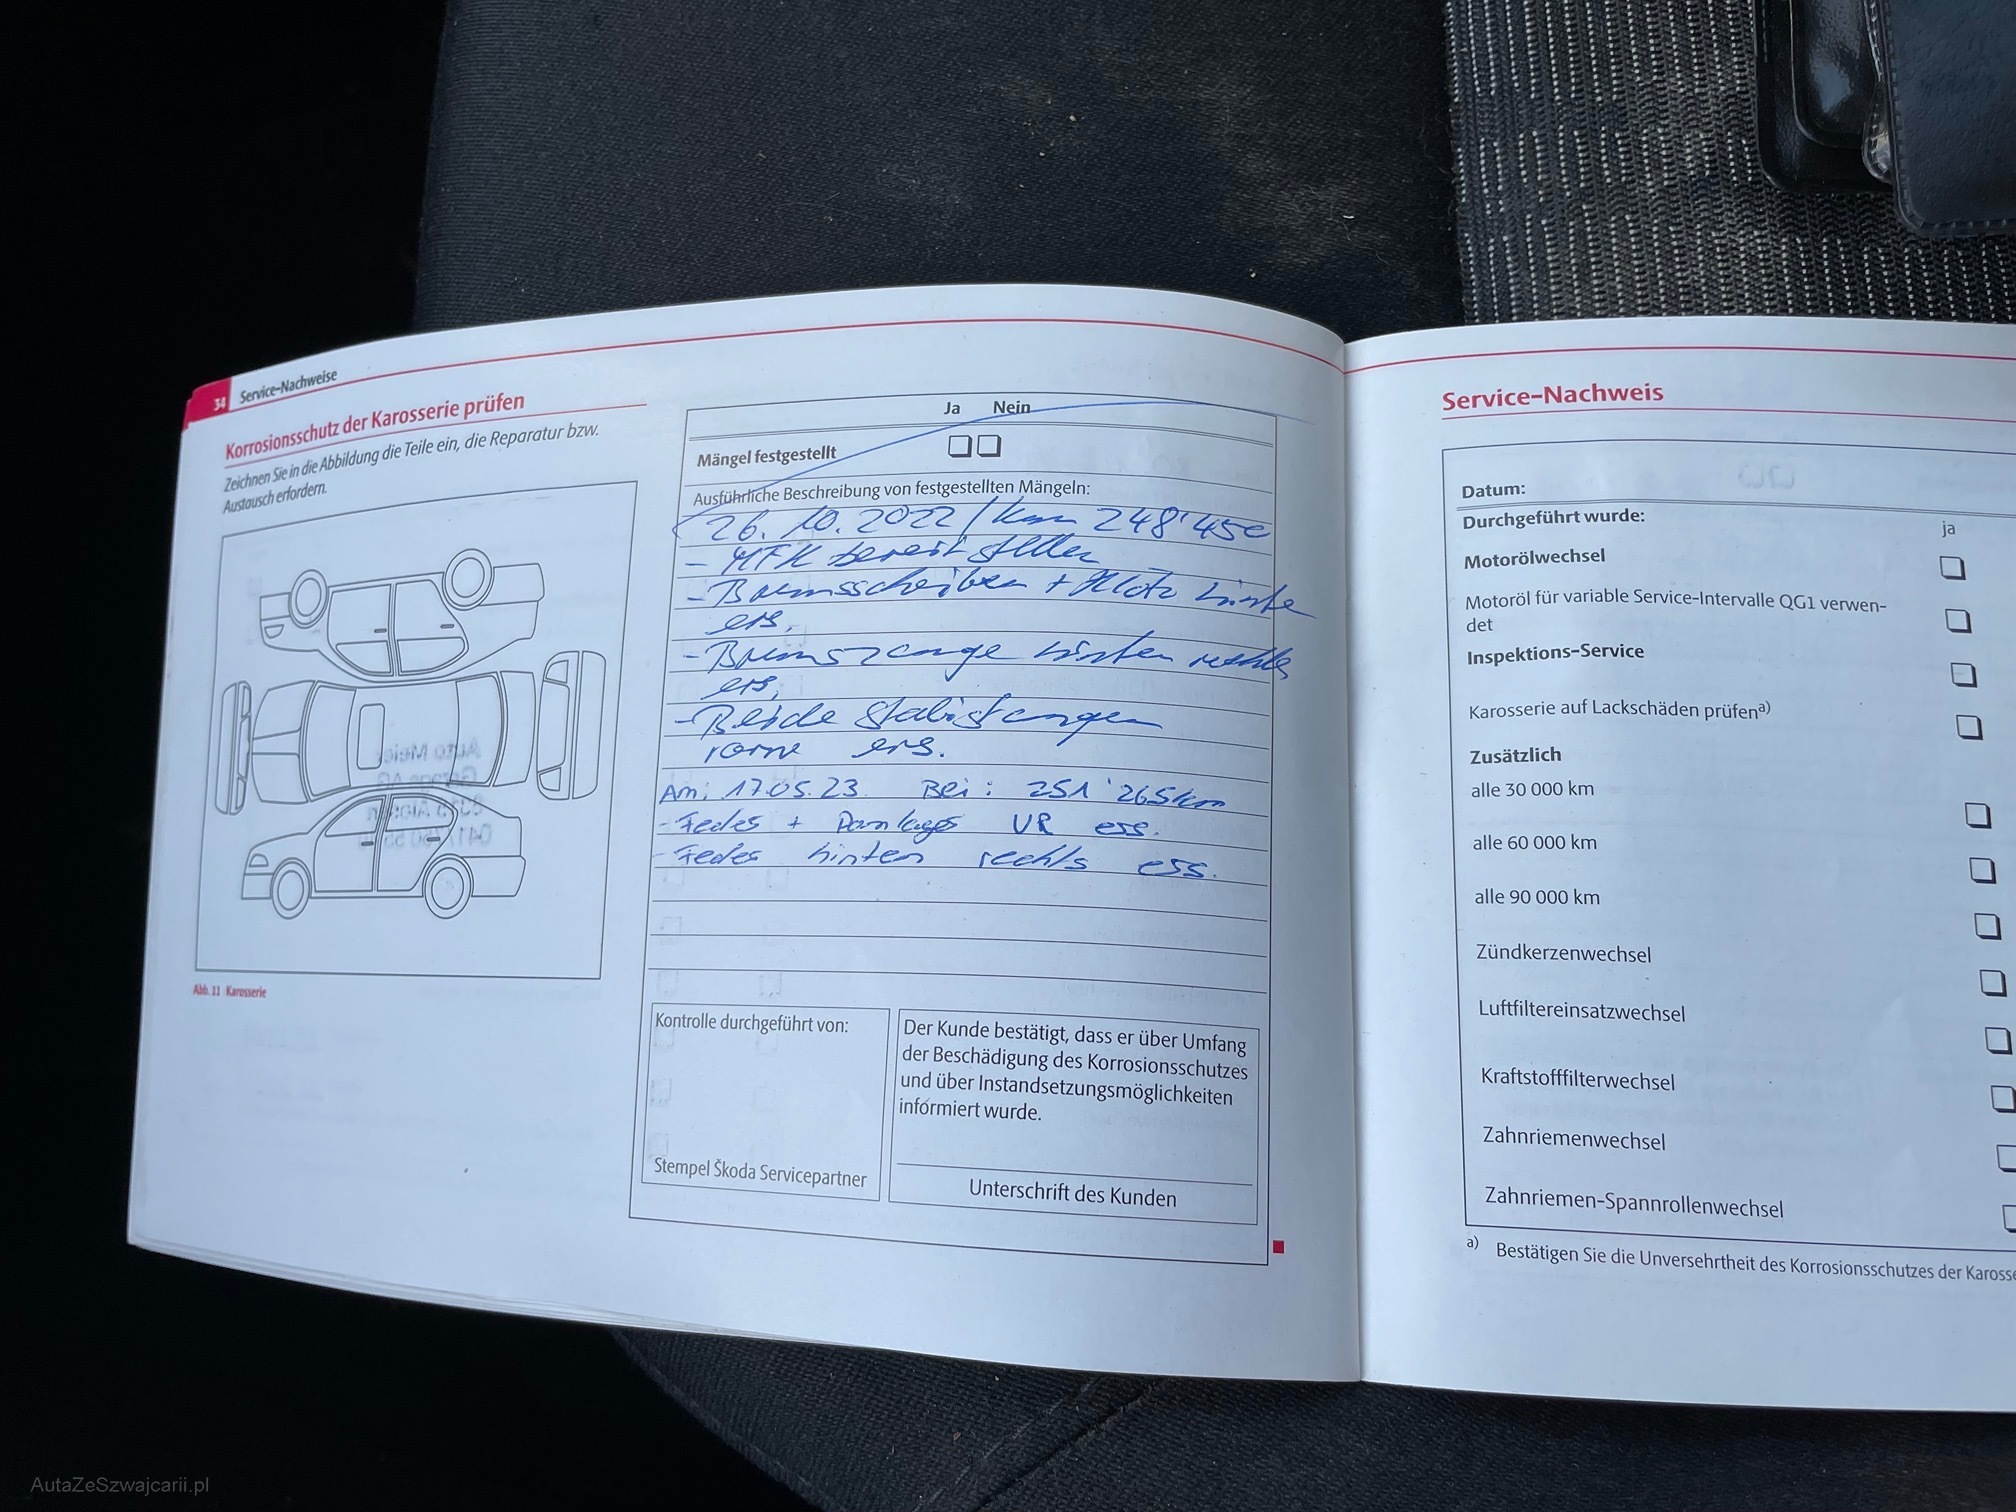 34 Service-Nachweise
Korrosionsschutz der Karosserie prüfen
Zeichnen Sie in die Abbildung die Teile ein, die Reparatur bzw.
Austausch erfordern.
Abb. 11 Karosserie
Ja Nein
Mängel festgestellt
Ausführliche Beschreibung von festgestellten Mängeln:
26.10.2022 / km 248'450
- MFK bereit stellen
- Bremsscheiben + Klötz hinten
ers.
- Bremszange hinten rechts
ers.
- Beide Stabistangen
vorne ers.
Am: 17.05.23 Bei: 251'265km
- Feder + Domlager VR ers.
- Feder hinten rechts ers.
Kontrolle durchgeführt von:
Stempel Škoda Servicepartner
Der Kunde bestätigt, dass er über Umfang
der Beschädigung des Korrosionsschutzes
und über Instandsetzungsmöglichkeiten
informiert wurde.
Unterschrift des Kunden
Service-Nachweis
Datum:
Durchgeführt wurde:
ja
Motorölwechsel
Motoröl für variable Service-Intervalle QG1 verwen-
det
Inspektions-Service
Karosserie auf Lackschäden prüfen a)
Zusätzlich
alle 30 000 km
alle 60 000 km
alle 90 000 km
Zündkerzenwechsel
Luftfiltereinsatzwechsel
Kraftstofffilterwechsel
Zahnriemenwechsel
Zahnriemen-Spannrollenwechsel
a) Bestätigen Sie die Unversehrtheit des Korrosionsschutzes der Karosse
AutaZeSzwajcarii.pl